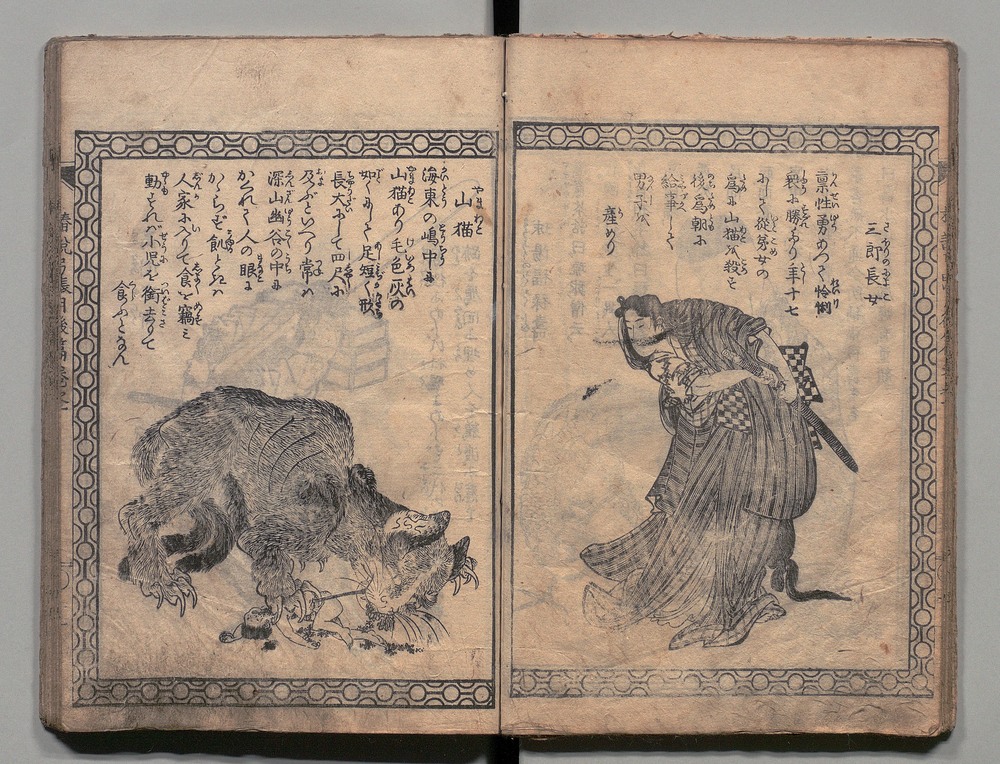 三郎長女
稟性勇あつて怜悧
衆に勝れり年十七
にして従弟女の
為に山猫を殺す
後為朝に
給事して
男子を
産めり
山猫
海東の嶋中に
山猫あり毛色灰の
如くにして足短く形
長大にして四尺に
及ぶといへり常は
深山幽谷の中に
かくれて人の眼に
かゝらず飢るときは
人家に入りて食を竊み
動もすれば小児を銜去りて
食ふとなん
椿説弓張月後篇巻之一